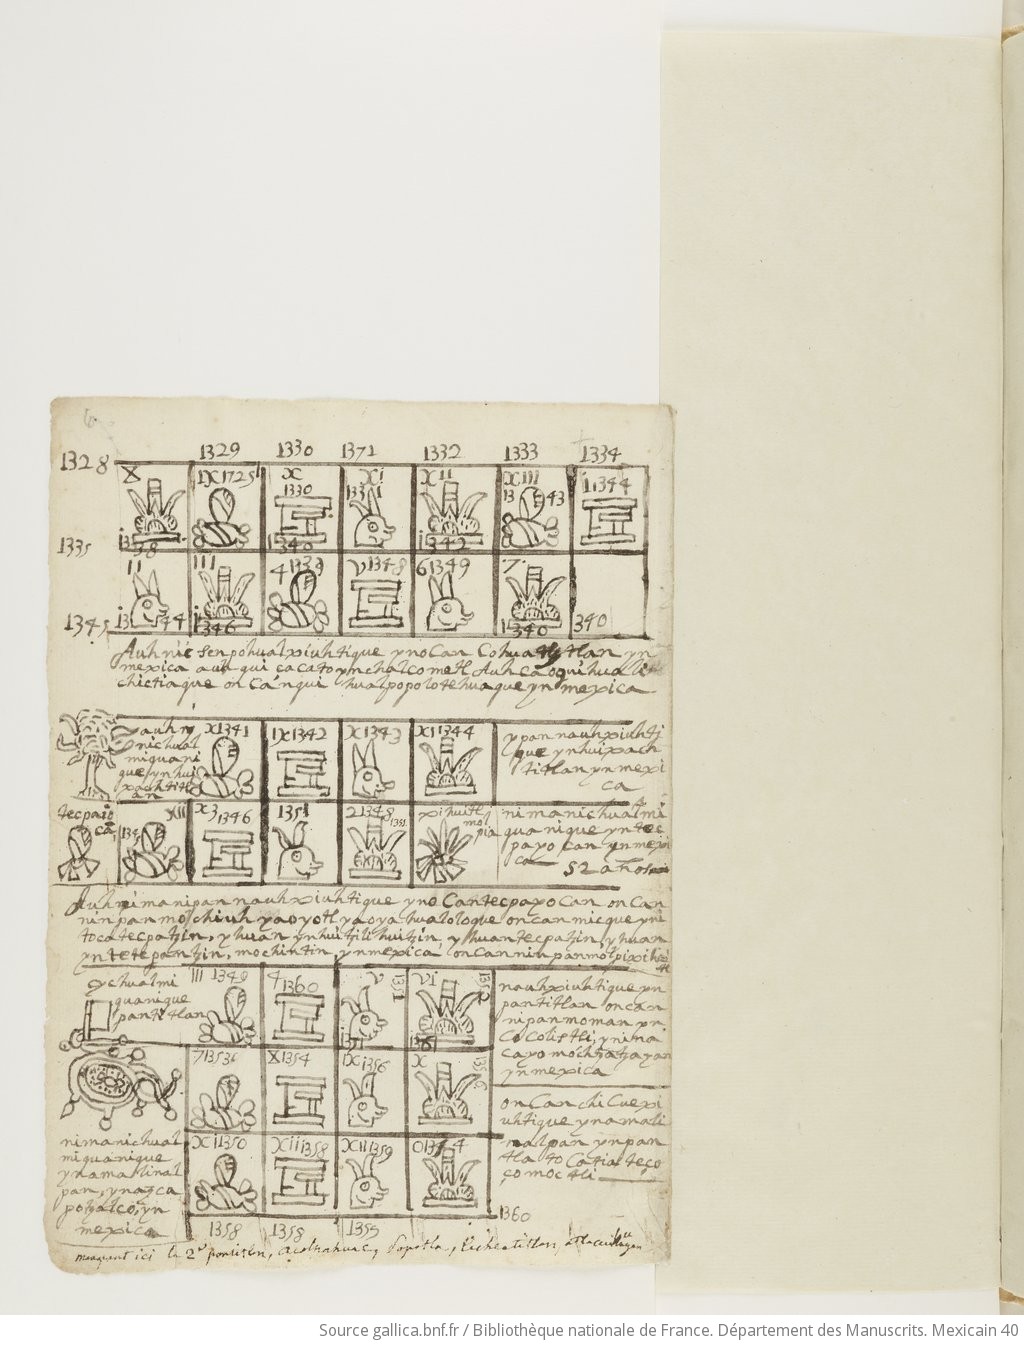 1328 1329 1330 1371 1332 1333 1334
X IX 1725 X 1330 Xi XII XIII 43 1344
1335 1338 1340 1342
II III 4 V 1348 6 1349 7
1345 1346 1340 340
Auh nic senpohualxiuhtique ynocan Cohuatlytlan yn
mexica auh qui cacato ynchalcometl Auh ca oquihuali
chictiaque on canqui hualpopolotehuaque yn mexica
auh n
nichual
miquani
que yn hui
xachtitl
an
X 1341 IX 1342 X 1343 XI 1344
ypan nauhxiuhti
que yn huixach
titlan yn mexi
ca
tecpaio
ca,
XII X3 1346 1351 2 1348 xihuitl
mo
pia
nimanichualmi
quanique yn tec
payo can yn mexi
ca 52 años
Auh nimanipan nauhxiuhtique yno Cantecpayocan on Can
nin pan mochiuh yaoyotl yaoyahualoloque oncan micque yni
toca tecpatzin, yhuan ynhuitzilihuitzin, yhuan tecpatzin, yhuan
yn tetepantzin, mochintin, yn mexica oncan nin panmolpixihui
yc hualmi
quanique
pantitlan
III 1349 4 1360 V 1351 VI 1352
nauhxiuhtique yn
pantitlan oncan
nipanmoman yn
Cocolistli, ynina
cayo mochtzatzayan
yn mexica
7 1353 X 1354 IX 1356 X 1356
on Can chiCuexi
uhtique ynamali
nalpan yn pan
tlato Catia teço
çomoctli
nimanichual
miquanique
ynamalinal
pan, ynazca
potzalco, yn
mexica
XII 1350 XIII 1358 XII 1359
1358 1358 1359 1360
manquant ici le 2d
Source gallica.bnf.fr / Bibliothèque nationale de France. Département des Manuscrits. Mexicain 40